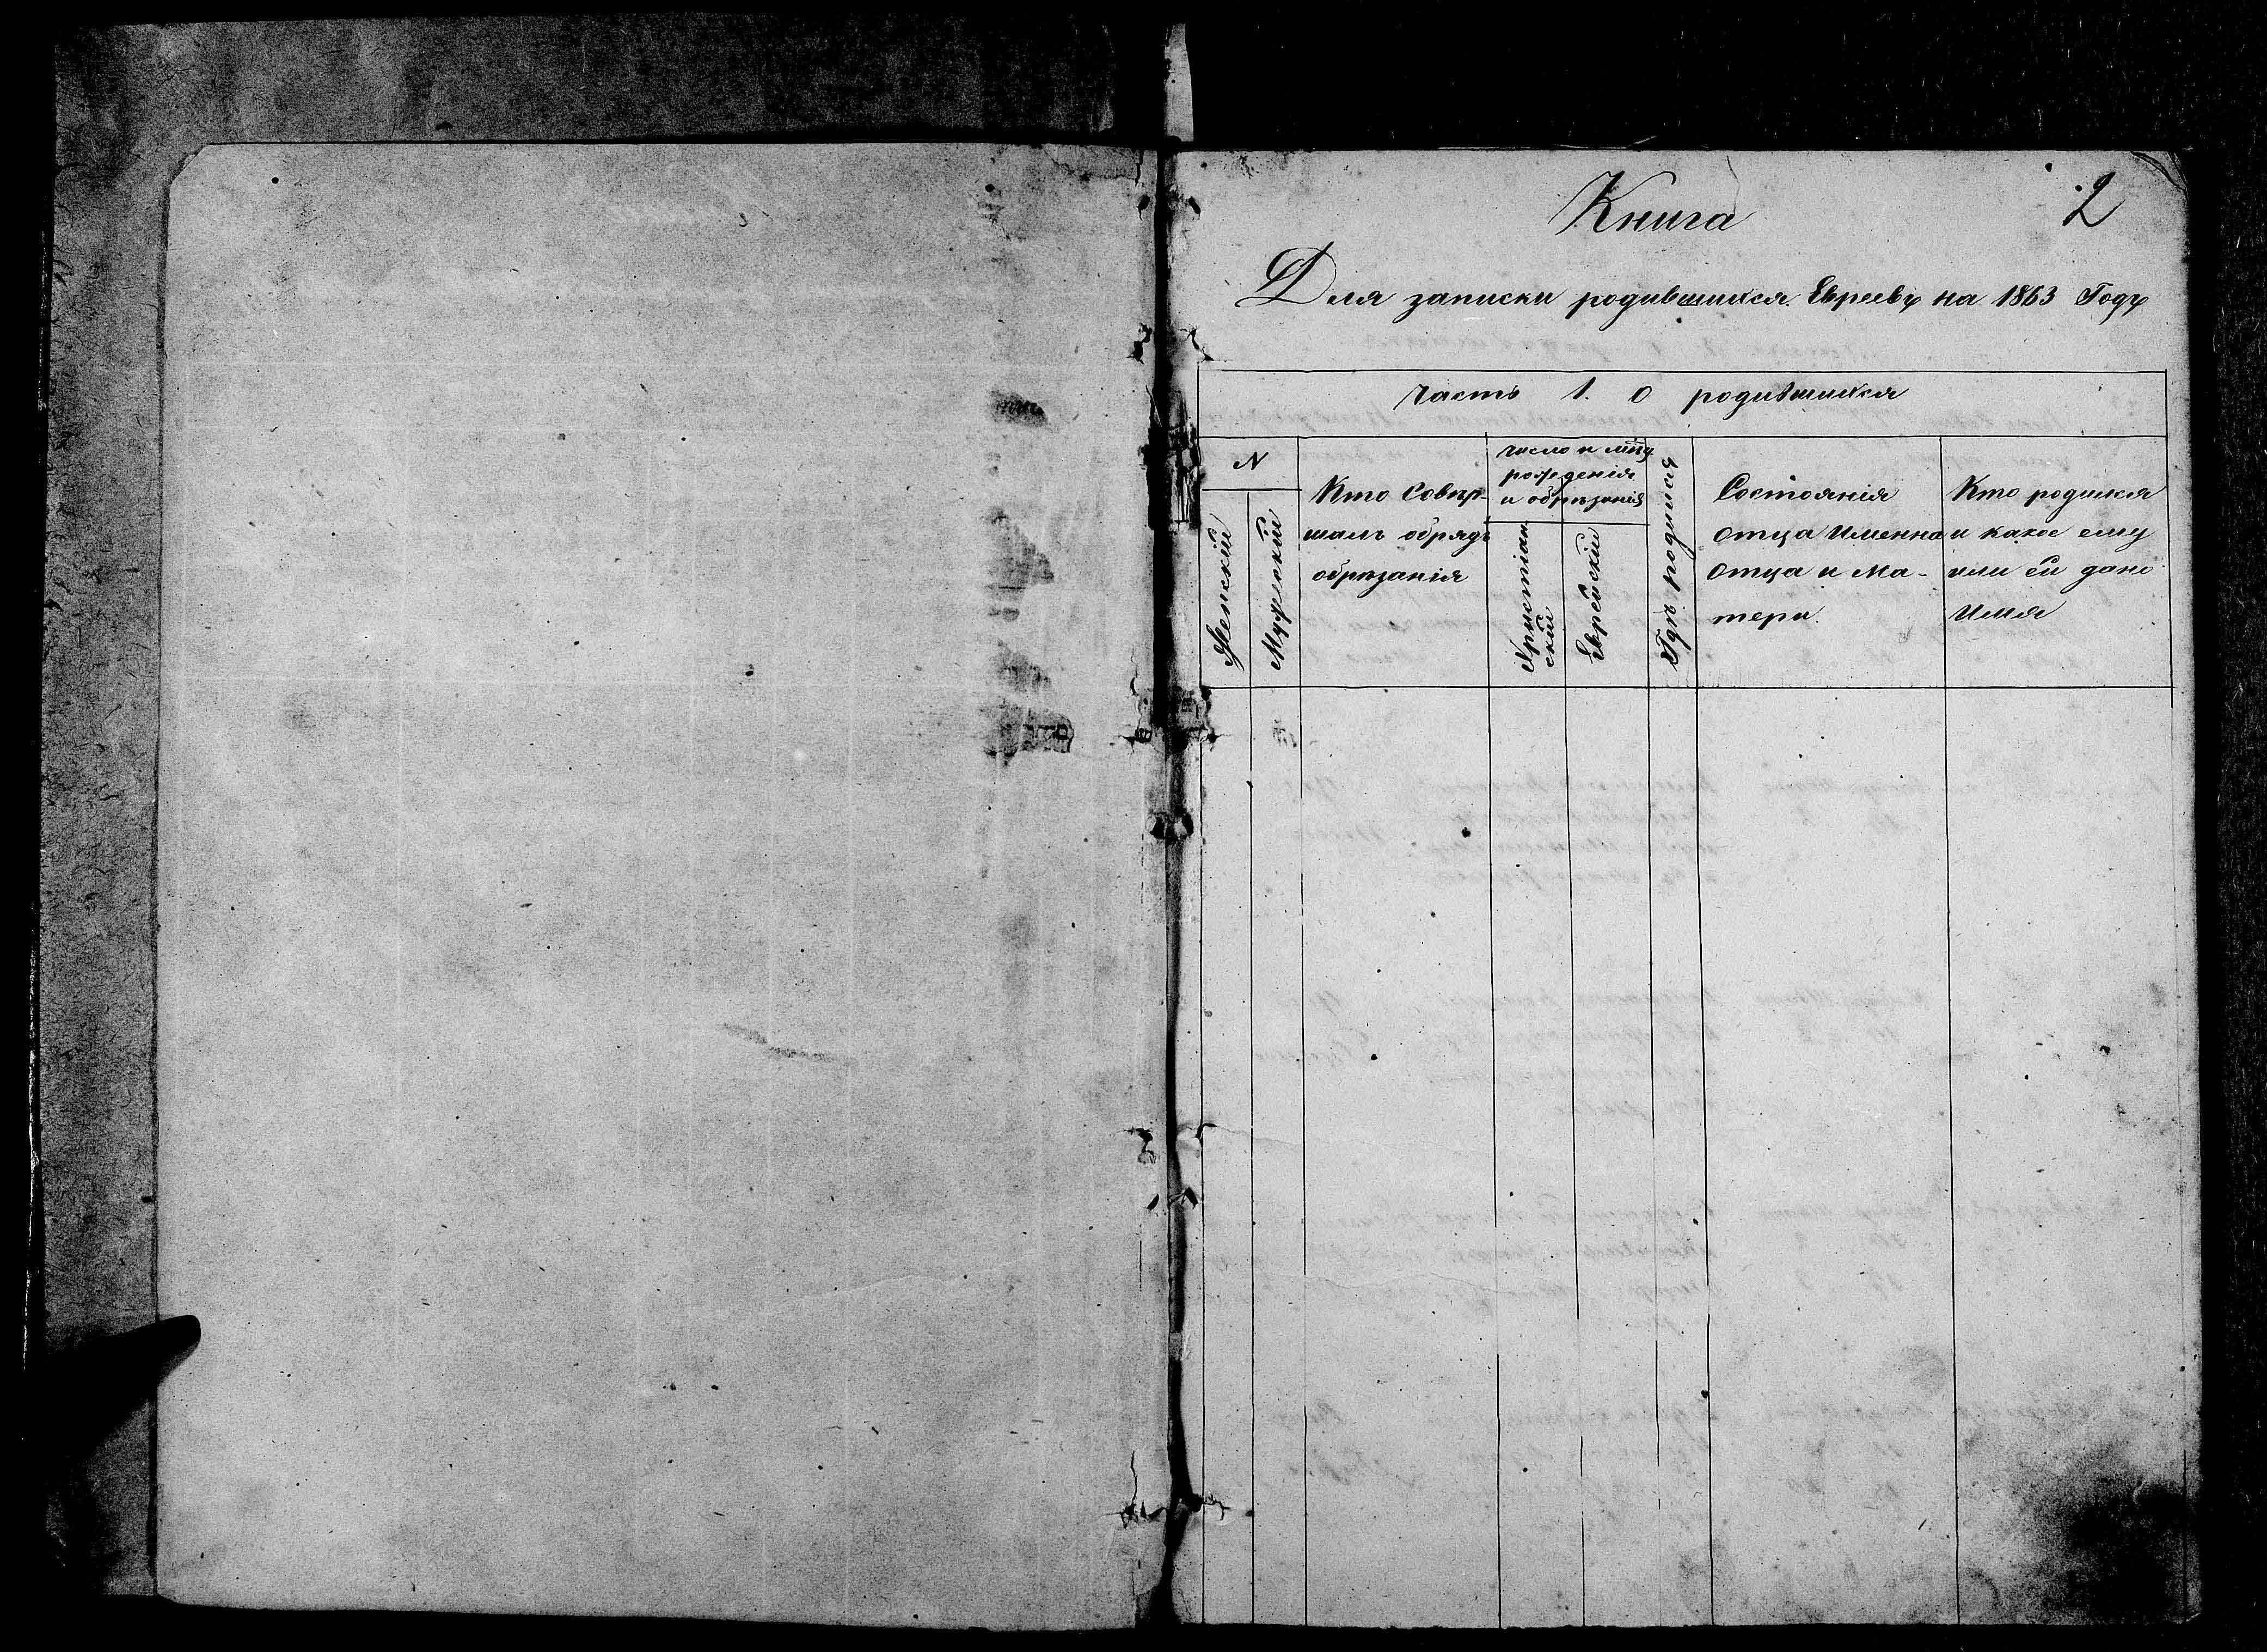 Книга
2
Для записки родившихся Евреевъ на 1863 Годъ
Часть 1. о родившихся
N
Женскій
Мужескій
Кто Совер-
шалъ обрядъ
обрѣзанія
число и мцъ
рожденія
и обрѣзанія
Христіан
скій
Еврейскій
Гдѣ родился
Состоянія
отца Именна
отца и Ма-
тери.
Кто родился
и какое ему
или ей дано
Имя